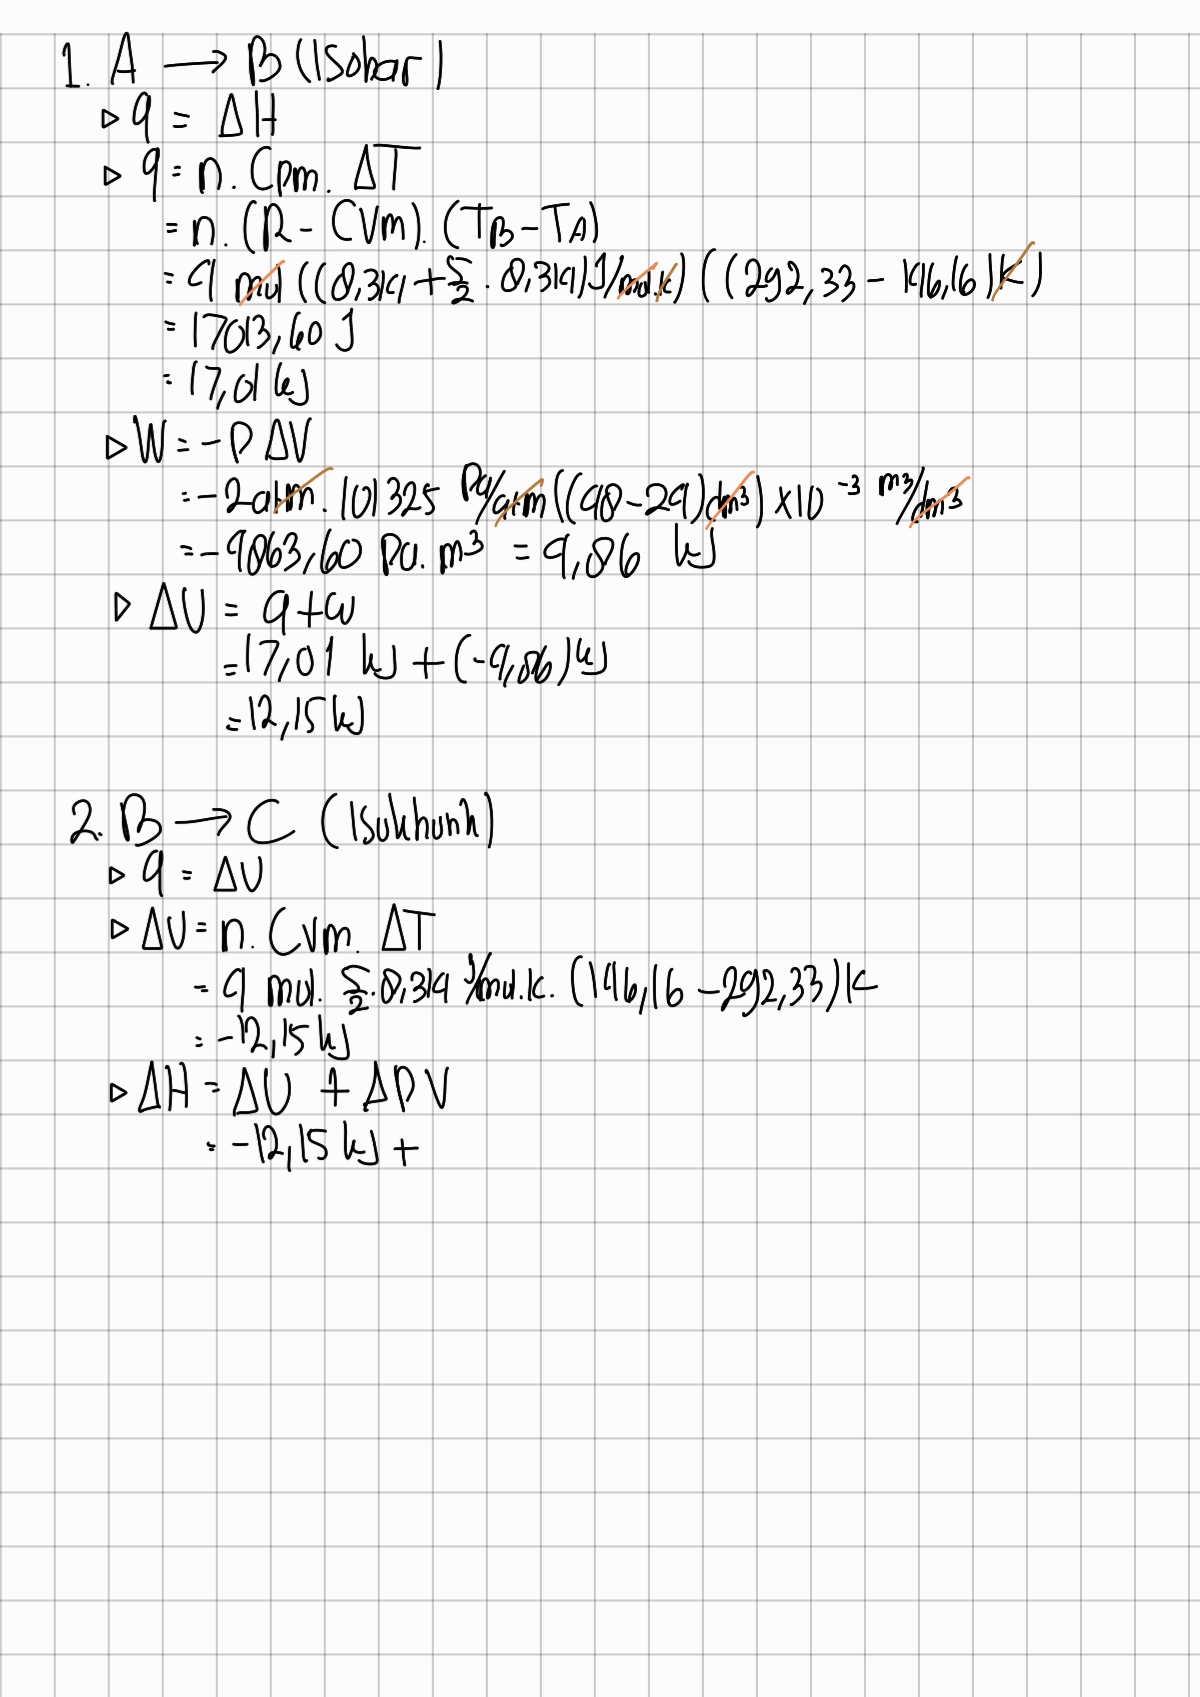 1. A → B (Isobar)
▷ q = ΔH
▷ q = n. Cpm. ΔT
= n. (R - CVm). (TB - TA)
= 4 mol ((8,314 + 5/2 . 8,314) J/mol.K) ((292,33 - 146,16) K)
= 17013,60 J
= 17,01 kJ
▷ W = - P ΔV
= - 2 atm. 101325 Pa/atm ((48-24) dm³) x10 ⁻³ m³/dm³
= - 4863,60 Pa. m³ = 4,86 kJ
▷ ΔU = q + w
= 17,01 kJ + (-4,86) kJ
= 12,15 kJ
2. B → C (Isokhorik)
▷ q = ΔU
▷ ΔU = n. Cvm. ΔT
= 4 mol. 5/2 . 8,314 J/mol.K. (146,16 - 292,33) K
= -12,15 kJ
▷ ΔH = ΔU + ΔPV
= -12,15 kJ +